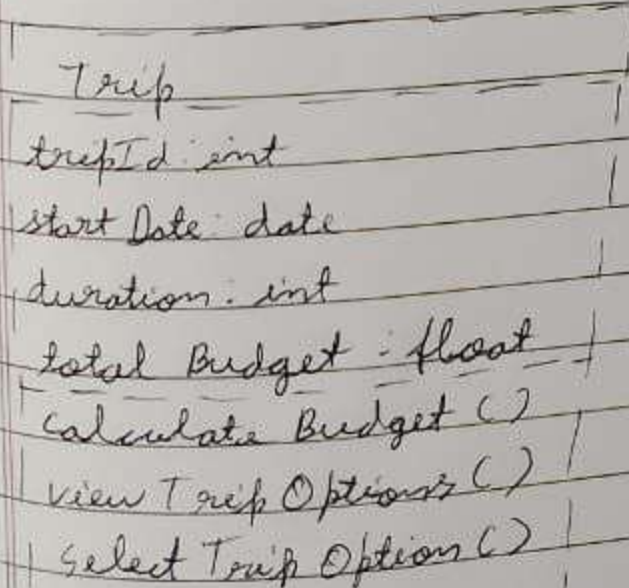 Trip
tripId: int
start Date: date
duration: int
total Budget: float
calculate Budget ()
view Trip Options ()
Select Trip Option ()